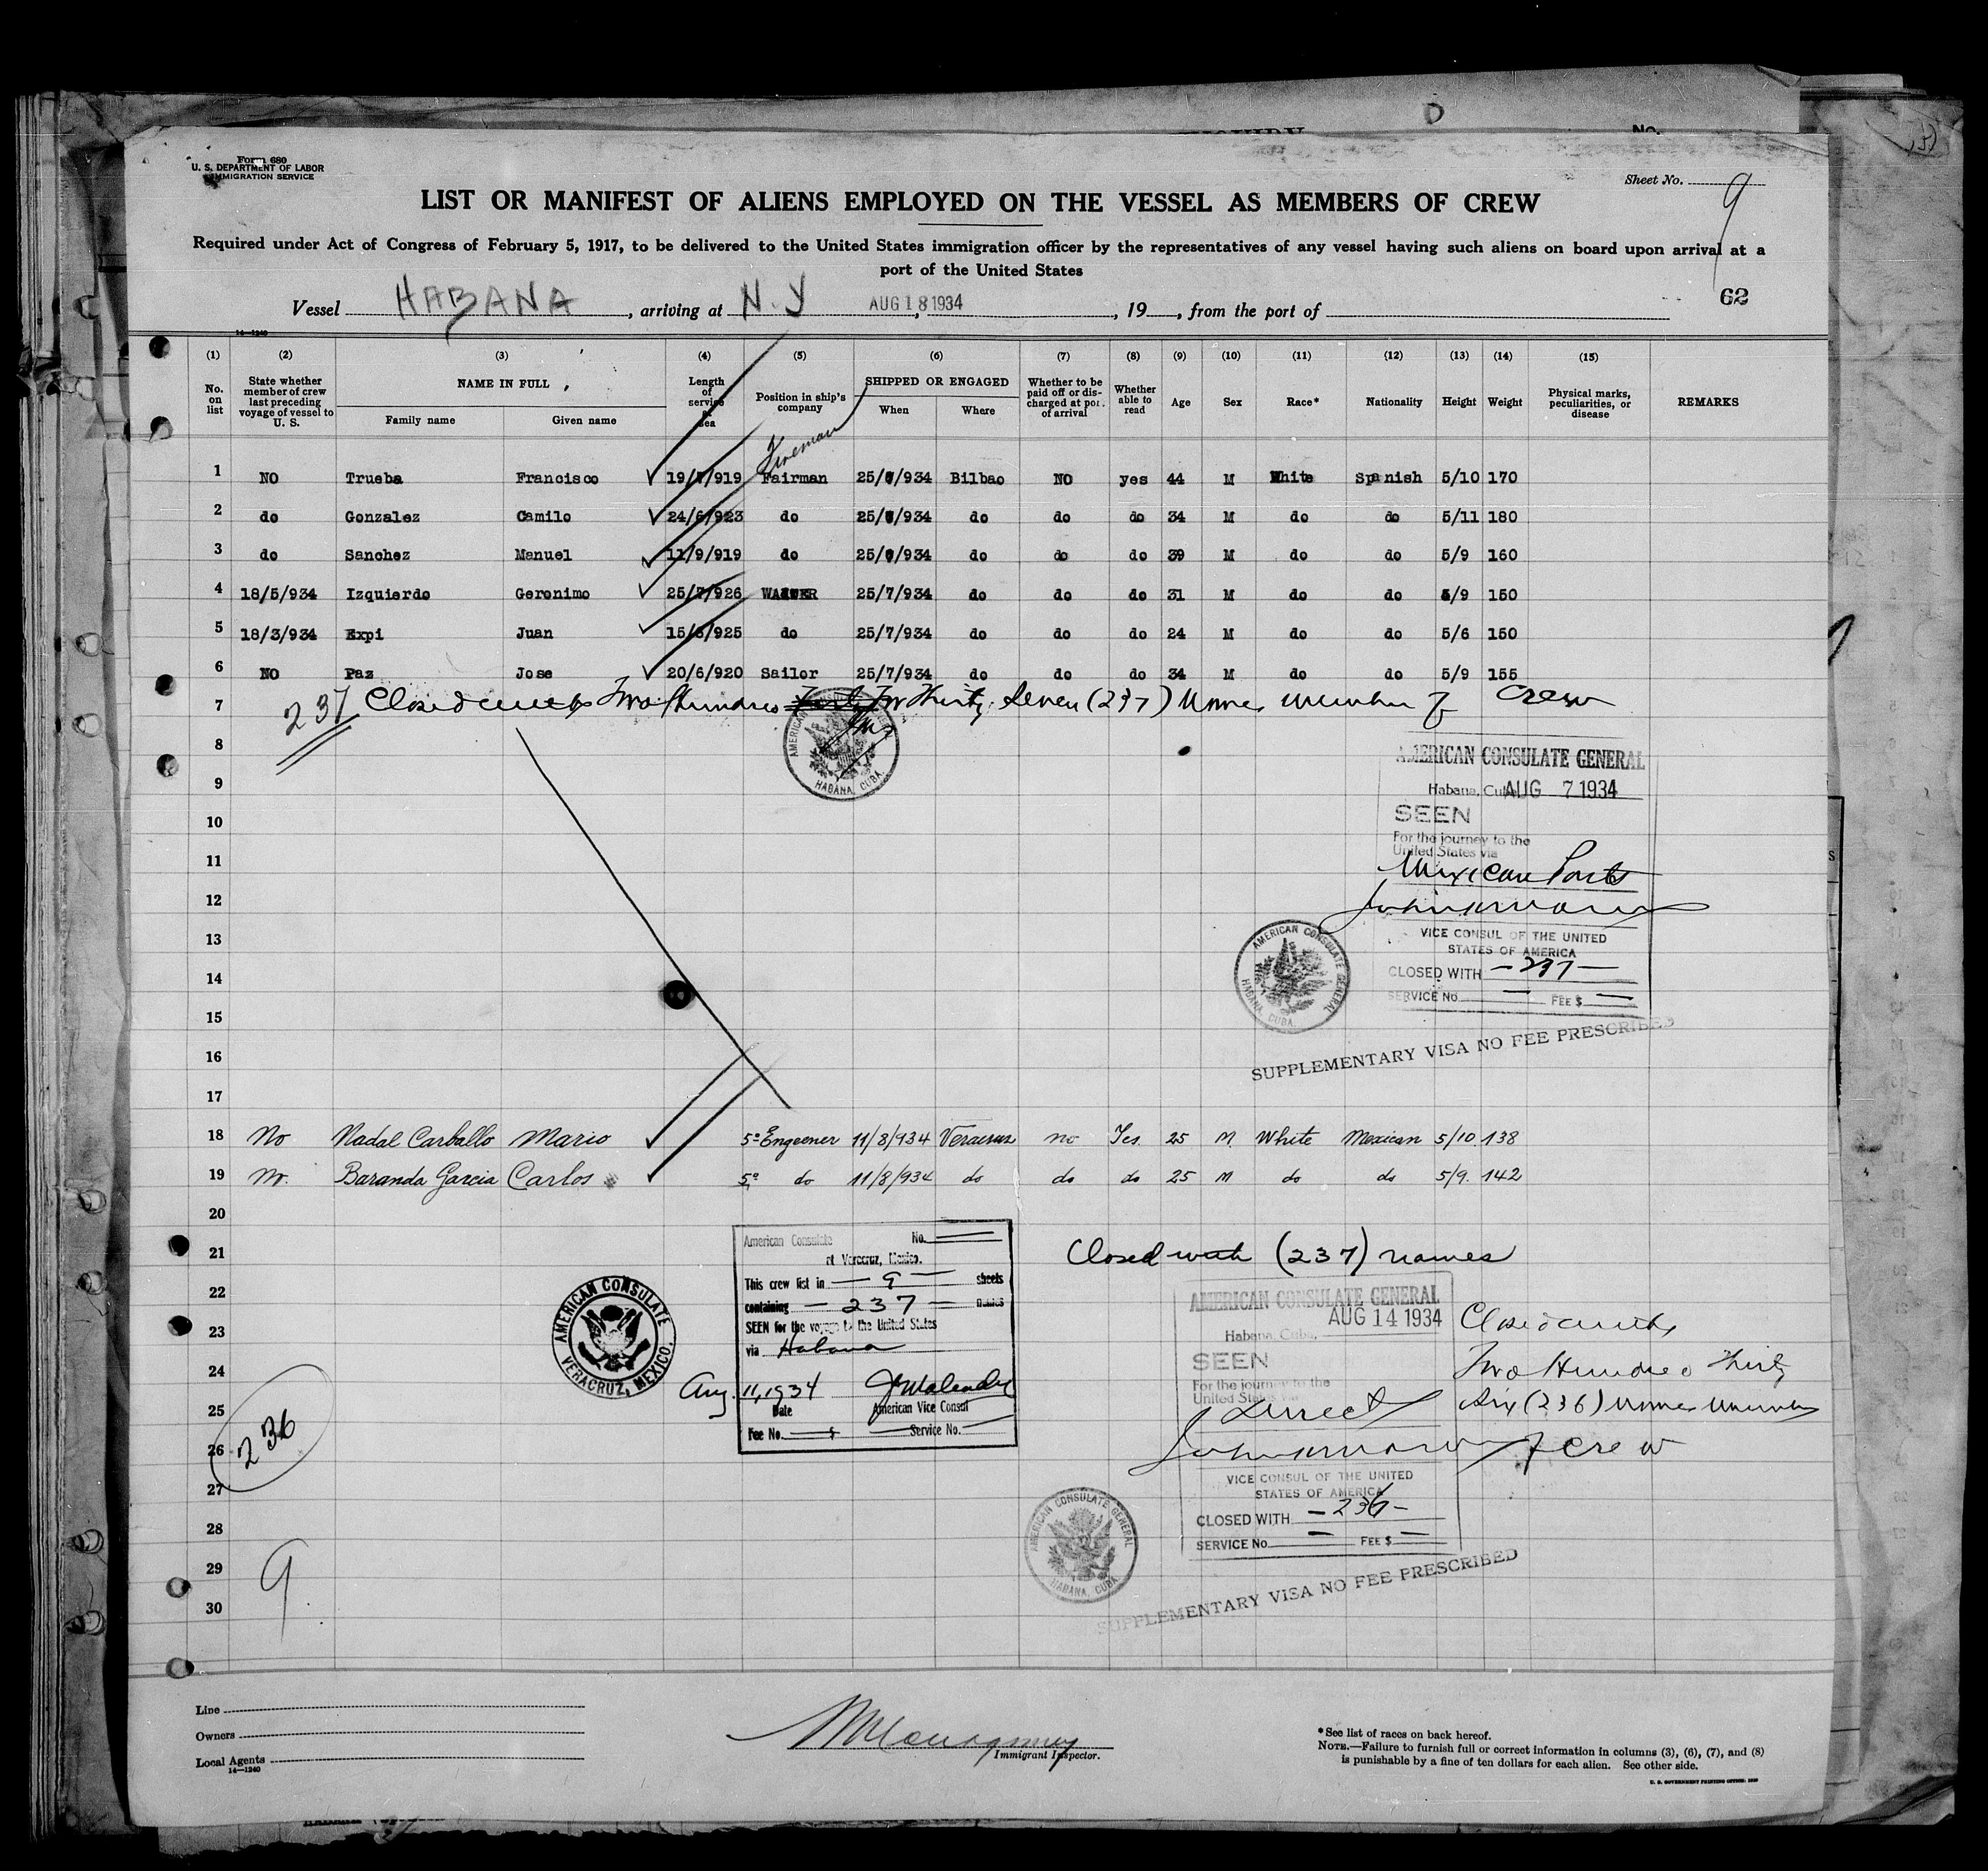 Form 680
U. S. DEPARTMENT OF LABOR
IMMIGRATION SERVICE
Sheet No. 9
LIST OR MANIFEST OF ALIENS EMPLOYED ON THE VESSEL AS MEMBERS OF CREW
Required under Act of Congress of February 5, 1917, to be delivered to the United States immigration officer by the representatives of any vessel having such aliens on board upon arrival at a
port of the United States
62
Vessel HABANA, arriving at N.Y AUG 18 1934, 19 , from the port of
14—1240
(1) (2) (3) (4) (5) (6) (7) (8) (9) (10) (11) (12) (13) (14) (15)
No. on list
State whether member of crew last preceding voyage of vessel to U. S.
NAME IN FULL
Family name Given name
Length of service at sea
Position in ship's company
SHIPPED OR ENGAGED
When Where
Whether to be paid off or discharged at port of arrival
Whether able to read
Age Sex Race* Nationality Height Weight
Physical marks, peculiarities, or disease
REMARKS
Fireman
1 NO Trueba Francisco 19/7/919 Fairman 25/7/934 Bilbao NO yes 44 M White Spanish 5/10 170
2 do Gonzalez Camilo 24/6/923 do 25/7/934 do do do 34 M do do 5/11 180
3 do Sanchez Manuel 11/9/919 do 25/7/934 do do do 39 M do do 5/9 160
4 18/5/934 Izquierdo Geronimo 25/7/926 25/7/934 do do do 31 M do do 5/9 150
5 18/3/934 Expi Juan 15/6/925 do 25/7/934 do do do 24 M do do 5/6 150
6 NO Paz Jose 20/6/920 Sailor 25/7/934 do do do 34 M do do 5/9 155
7 237 Closed with Two Hundred Thirty Seven (237) names members of crew
8
AMERICAN CONSULATE GENERAL
HABANA, CUBA.
AMERICAN CONSULATE GENERAL
9
Habana, Cuba AUG 7 1934
10
SEEN
For the journey to the
11
United States via
Mexican Ports
12
13
VICE CONSUL OF THE UNITED
STATES OF AMERICA
AMERICAN CONSULATE GENERAL
HABANA, CUBA.
14
CLOSED WITH —237—
SERVICE No. — FEE $ —
15
SUPPLEMENTARY VISA NO FEE PRESCRIBED
16
17
18 No Nadal Carballo Mario 5º Engeener 11/8/934 Veracruz no Yes. 25 M White Mexican 5/10 138
19 No. Baranda Garcia Carlos 5º do 11/8/934 do do do 25 M do do 5/9. 142
20
21
Closed with (237) names
American Consulate No.
at Veracruz, Mexico.
22
This crew list in — 9 — sheets
containing — 237 — names
SEEN for the voyage to the United States
via Habana
Aug. 11, 1934
Date American Vice Consul
Fee No. $ Service No.
AMERICAN CONSULATE
VERACRUZ, MEXICO.
AMERICAN CONSULATE GENERAL
AUG 14 1934
23
Habana, Cuba,
SEEN
24
For the journey to the
United States via
Direct
Closed with
Two Hundred Thirty
Six (236) names members
of crew
25
26
236
27
VICE CONSUL OF THE UNITED
STATES OF AMERICA
CLOSED WITH —236—
SERVICE No. — FEE $ —
28
AMERICAN CONSULATE GENERAL
HABANA, CUBA.
SUPPLEMENTARY VISA NO FEE PRESCRIBED
29
9
30
Line
Owners
Local Agents
14—1240
Immigrant Inspector.
*See list of races on back hereof.
NOTE.—Failure to furnish full or correct information in columns (3), (6), (7), and (8)
is punishable by a fine of ten dollars for each alien. See other side.